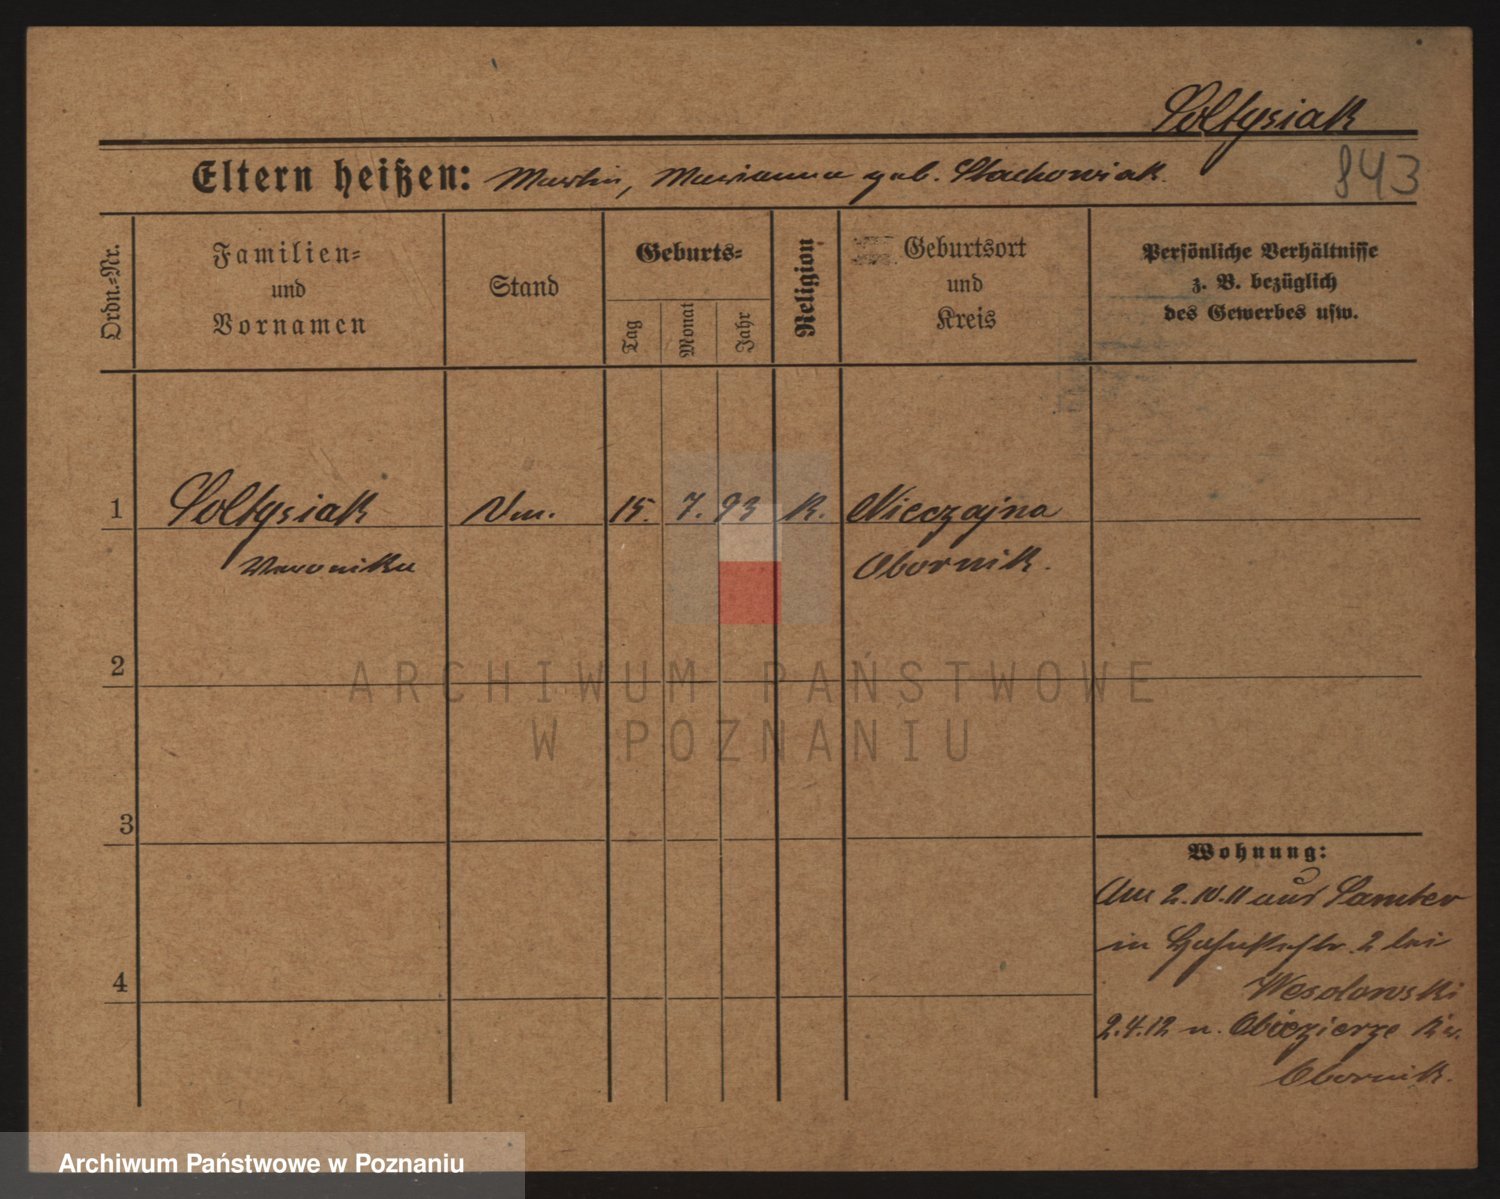 Sołtysiak
843
Eltern heißen: Martin, Marianna geb. Stachowiak
Ordn.-Nr.
Familien-
und
Vornamen
Stand
Geburts-
Tag
Monat
Jahr
Religion
Geburtsort
und
Kreis
Persönliche Verhältnisse
z. B. bezüglich
des Gewerbes usw.
1 Sołtysiak 15. 7. 93 K. Nieczajna
Veronika Obornik.
2
ARCHIWUM PAŃSTWOWE
W POZNANIU
3
Wohnung:
Am 2.10.11 aus Samter
in 2 bei
Wesolowski
2.4.12 n. Obiezierze Kr.
Obornik.
4
Archiwum Państwowe w Poznaniu